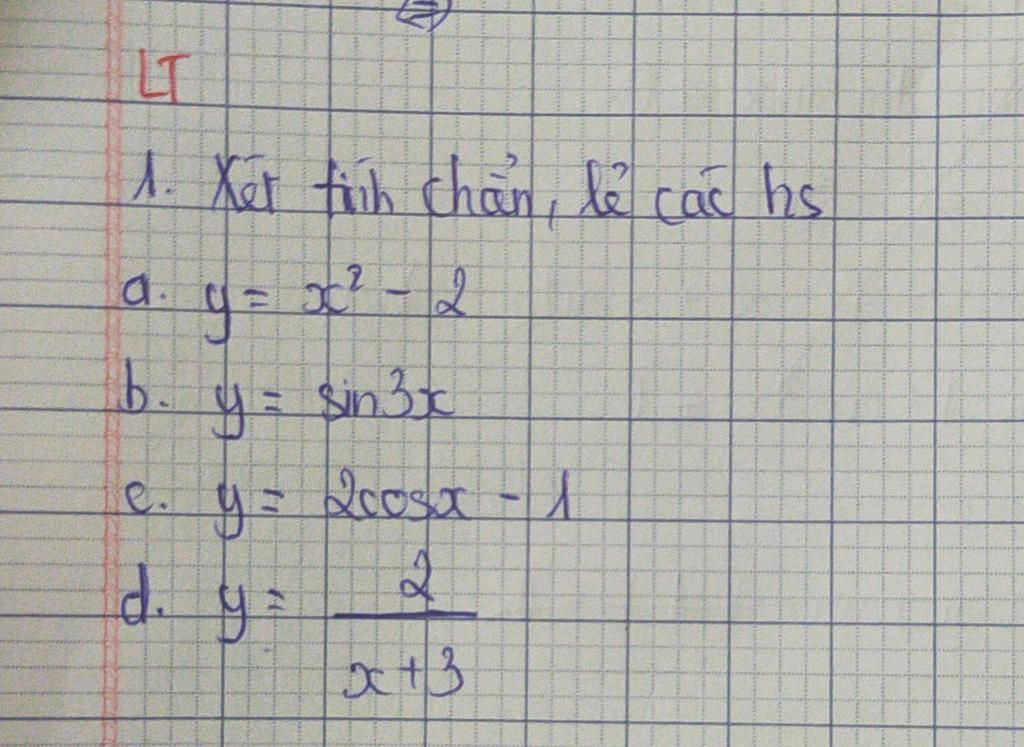 LT
1. Xét tính chẵn, lẻ các hs
a. y = x² - 2
b. y = sin3x
c. y = 2cosx - 1
d. y = 2 / x + 3